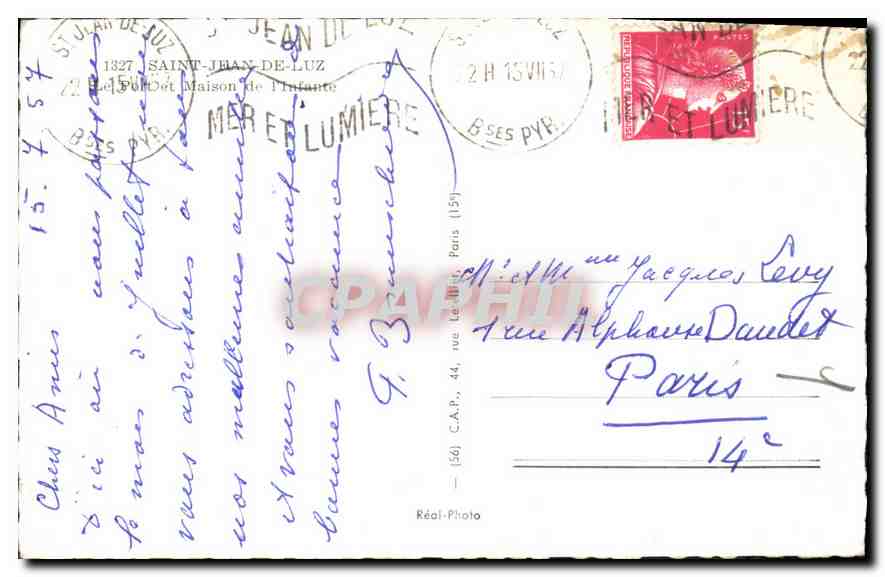 1327 SAINT-JEAN-DE-LUZ
Le Port et Maison de l'Infante
ST JEAN DE LUZ
22H 15 VII 57
BSES PYR.
JEAN DE LUZ
MER ET LUMIÈRE
ST JEAN DE LUZ
22H 15 VII 57
BSES PYR.
MER ET LUMIÈRE
POSTES
REPUBLIQUE FRANÇAISE
15.7.57
Chers Amis
D'ici où nous passons
le mois de Juillet nous
vous adressons à tous
nos meilleures amitiés
et vous souhaitons de
bonnes vacances
(56) C.A.P., 44, rue Letellier, Paris (15e)
Mr et Mme Jacques Levy
1 rue Alphonse Daudet
Paris
14e
Réal-Photo
CPAPHIL